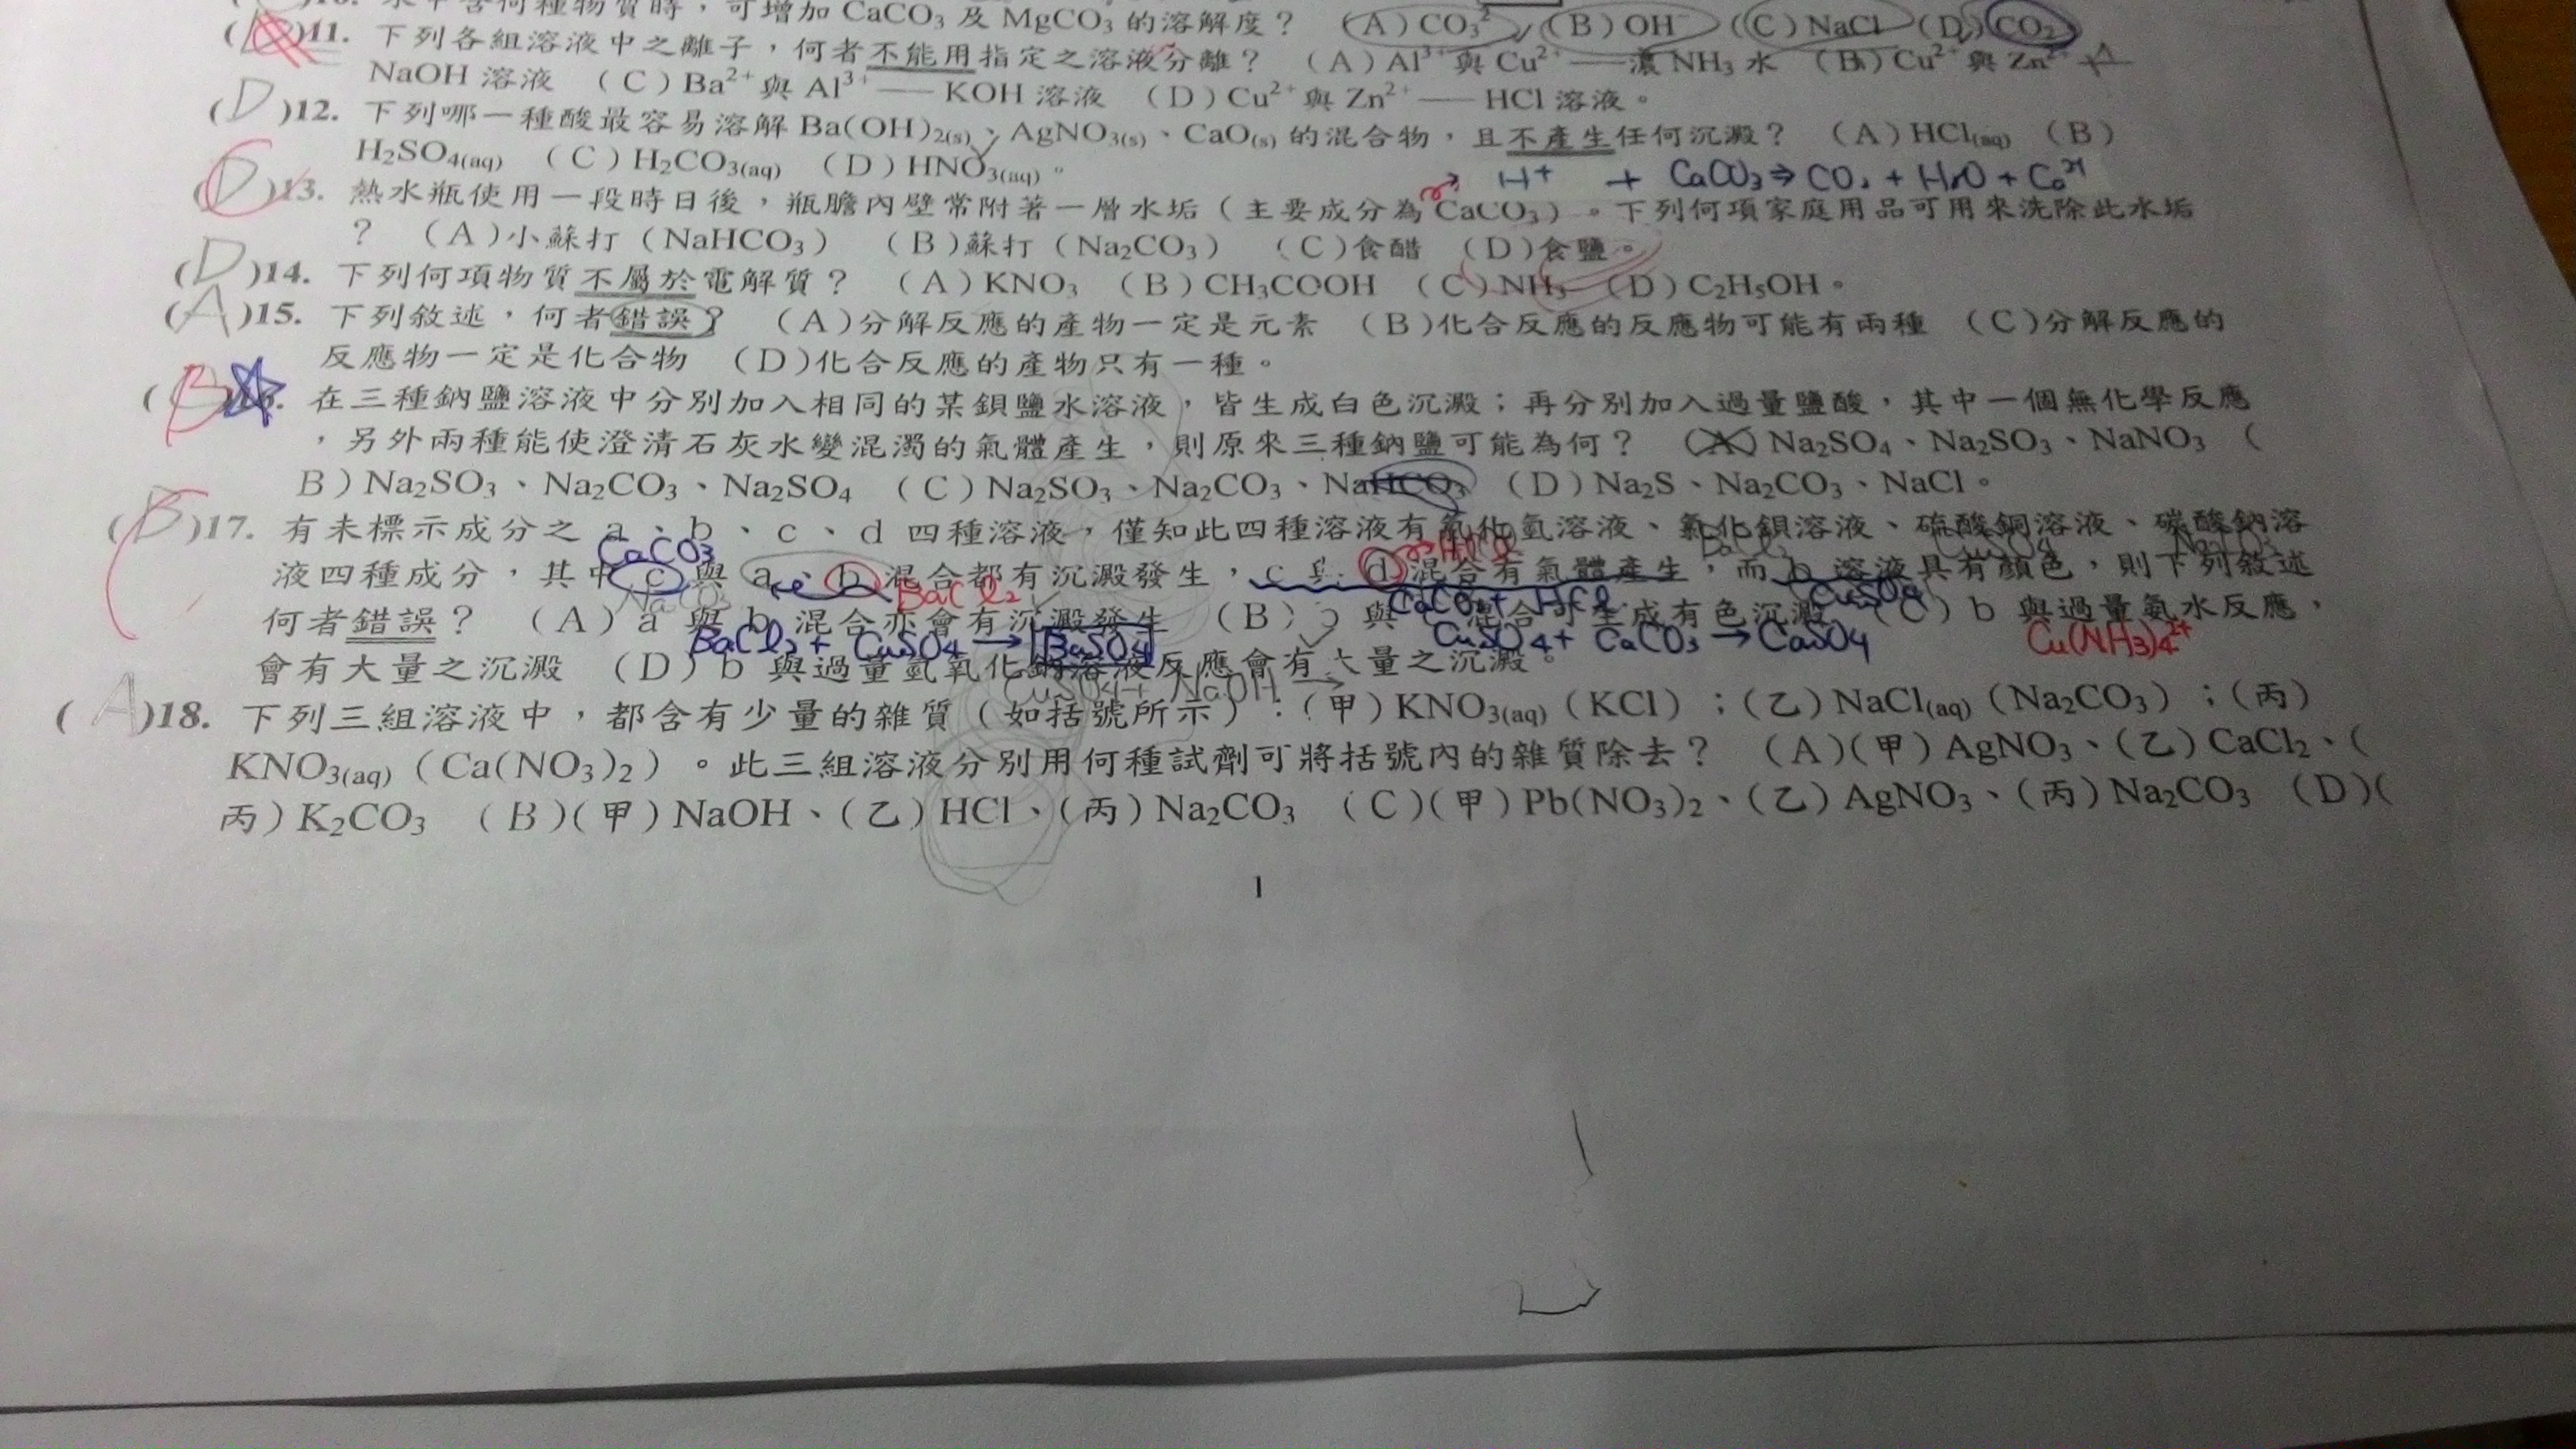 水中含何種物質時，可增加 CaCO₃ 及 MgCO₃ 的溶解度？ (A) CO₃²⁻ (B) OH⁻ (C) NaCl (D) CO₂
( )11. 下列各組溶液中之離子，何者不能用指定之溶液分離？ (A) Al³⁺ 與 Cu²⁺ —— 濃 NH₃ 水 (B) Cu²⁺ 與 Zn²⁺
NaOH 溶液 (C) Ba²⁺ 與 Al³⁺ —— KOH 溶液 (D) Cu²⁺ 與 Zn²⁺ —— HCl 溶液。
(D)12. 下列哪一種酸最容易溶解 Ba(OH)₂(s)、AgNO₃(s)、CaO(s) 的混合物，且不產生任何沉澱？ (A) HCl(aq) (B)
H₂SO₄(aq) (C) H₂CO₃(aq) (D) HNO₃(aq)。
H⁺ + CaCO₃ ⇒ CO₂ + H₂O + Ca²⁺
(D)13. 熱水瓶使用一段時日後，瓶膽內壁常附著一層水垢（主要成分為 CaCO₃）。下列何項家庭用品可用來洗除此水垢
？ (A)小蘇打（NaHCO₃） (B)蘇打（Na₂CO₃） (C)食醋 (D)食鹽。
(D)14. 下列何項物質不屬於電解質？ (A) KNO₃ (B) CH₃COOH (C) NH₃ (D) C₂H₅OH。
(A)15. 下列敘述，何者錯誤？ (A)分解反應的產物一定是元素 (B)化合反應的反應物可能有兩種 (C)分解反應的
反應物一定是化合物 (D)化合反應的產物只有一種。
(B) 在三種鈉鹽溶液中分別加入相同的某鋇鹽水溶液，皆生成白色沉澱；再分別加入過量鹽酸，其中一個無化學反應
，另外兩種能使澄清石灰水變混濁的氣體產生，則原來三種鈉鹽可能為何？ (A) Na₂SO₄、Na₂SO₃、NaNO₃ (
B) Na₂SO₃、Na₂CO₃、Na₂SO₄ (C) Na₂SO₃、Na₂CO₃、NaHCO₃ (D) Na₂S、Na₂CO₃、NaCl。
(B)17. 有未標示成分之 a、b、c、d 四種溶液，僅知此四種溶液有氯化氫溶液、氯化鋇溶液、硫酸銅溶液、碳酸鈉溶
CaCO₃ HCl
液四種成分，其中 c 與 a、b 混合都有沉澱發生，c 與 d 混合有氣體產生，而 b 溶液具有顏色，則下列敘述
BaCl₂ CaCO₃ + HCl CuSO₄
何者錯誤？ (A) a 與 b 混合亦會有沉澱發生 (B) 與 混合可生成有色沉澱 (C) b 與過量氨水反應，
BaCl₂ + CuSO₄ → BaSO₄ CuSO₄ + CaCO₃ → CaSO₄ Cu(NH₃)₄²⁺
會有大量之沉澱 (D) b 與過量氫氧化鈉溶液反應會有大量之沉澱。
CuSO₄ + NaOH →
(A)18. 下列三組溶液中，都含有少量的雜質（如括號所示）：（甲）KNO₃(aq)（KCl）；（乙）NaCl(aq)（Na₂CO₃）；（丙）
KNO₃(aq)（Ca(NO₃)₂）。此三組溶液分別用何種試劑可將括號內的雜質除去？ (A)(甲) AgNO₃、(乙) CaCl₂、(
丙) K₂CO₃ (B)(甲) NaOH、(乙) HCl、(丙) Na₂CO₃ (C)(甲) Pb(NO₃)₂、(乙) AgNO₃、(丙) Na₂CO₃ (D)(
1